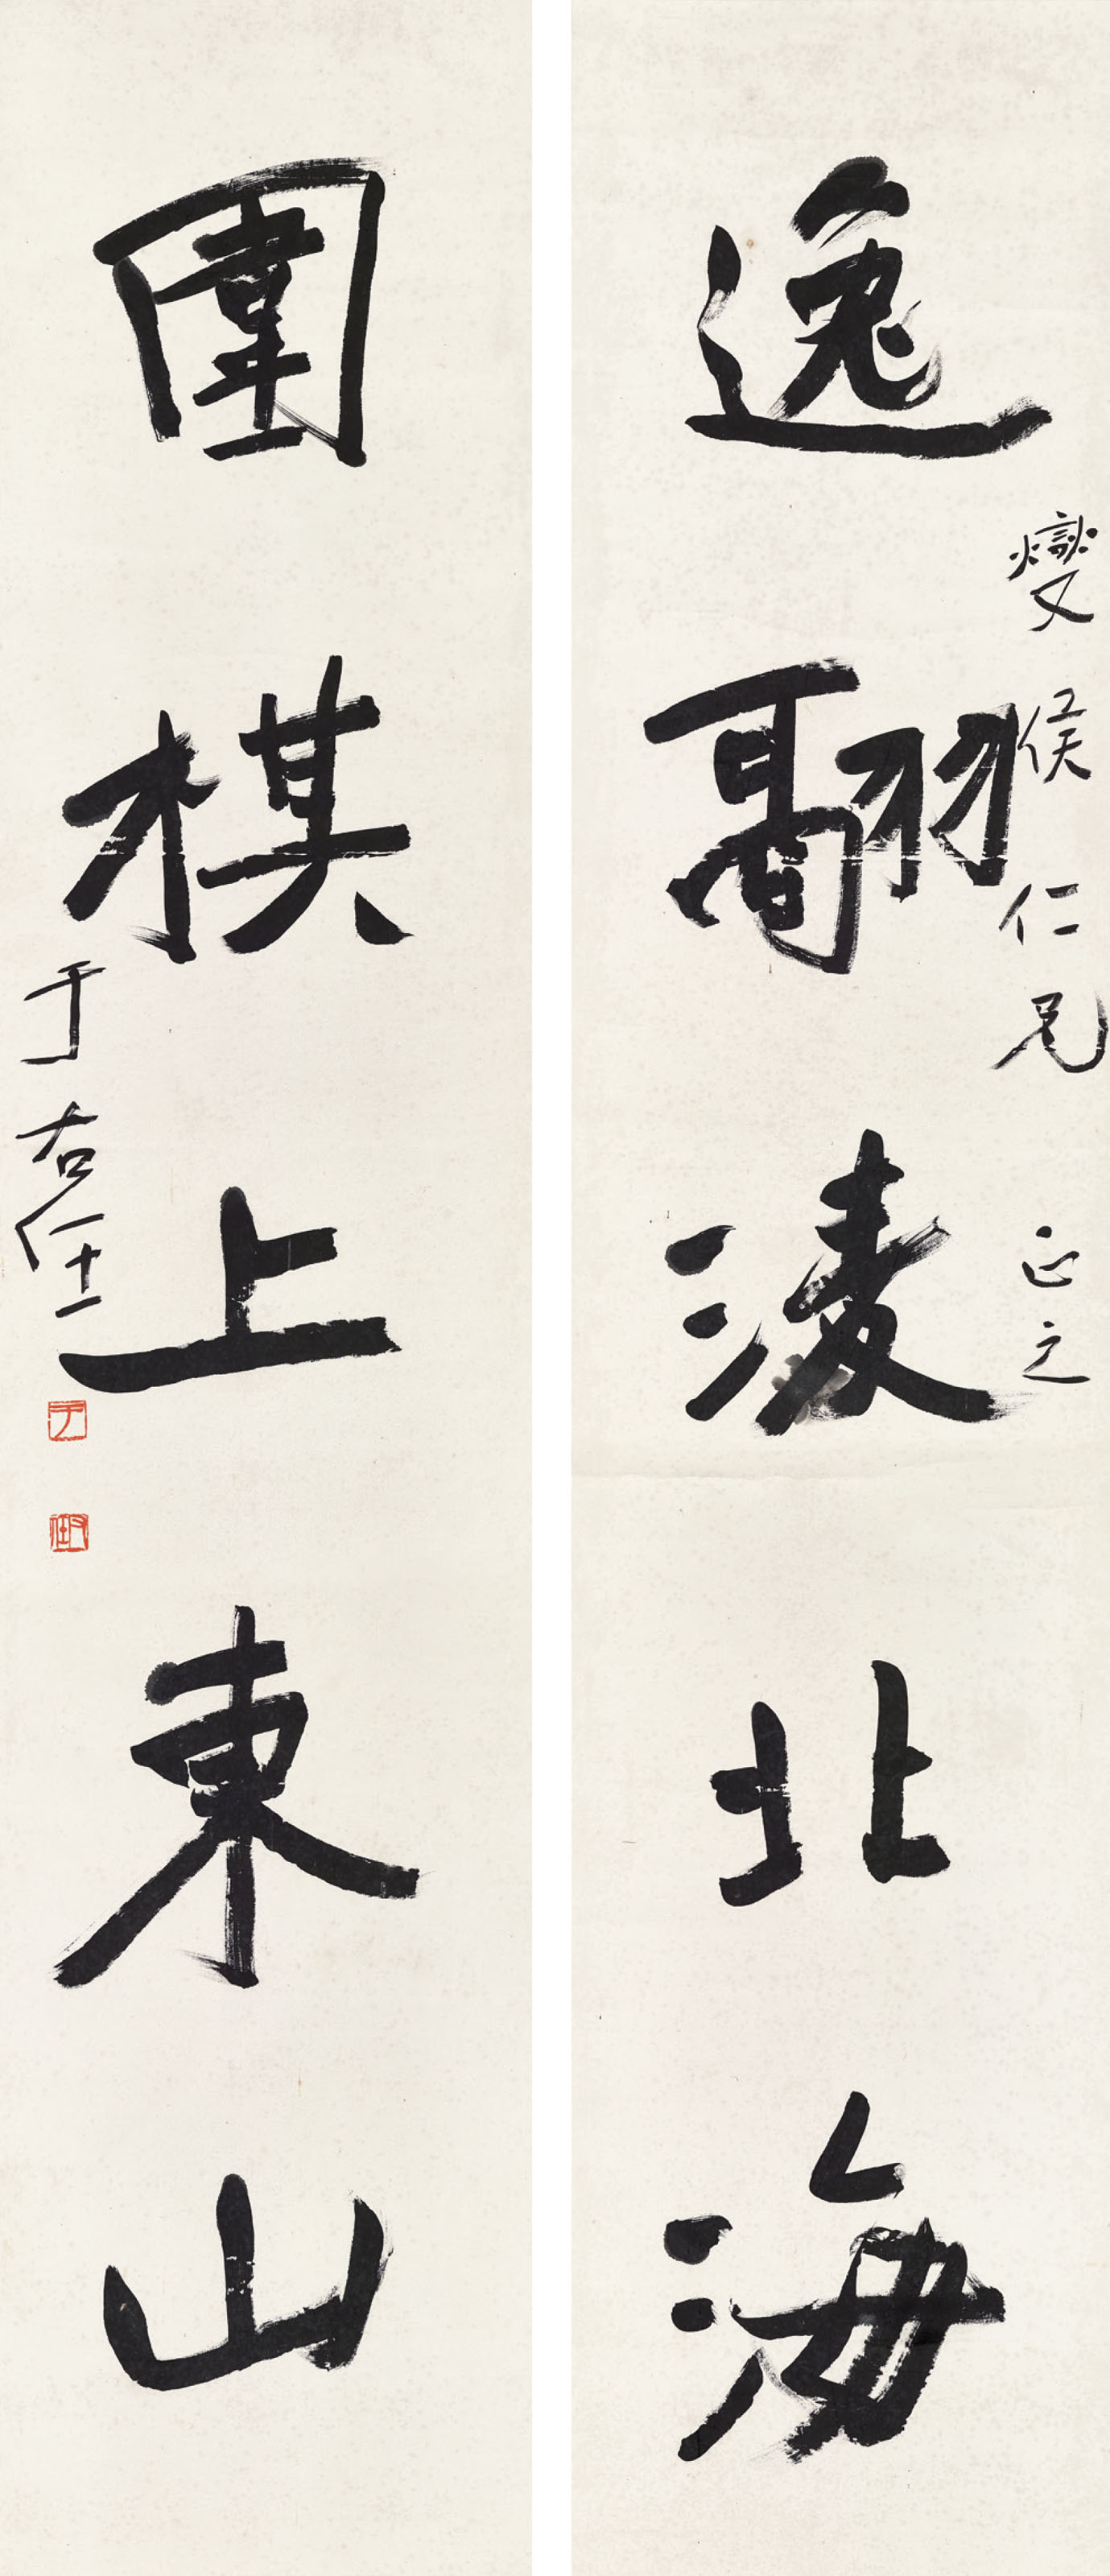 逸翮凌北海
燮侯仁兄正之
圍棋上東山
于右任